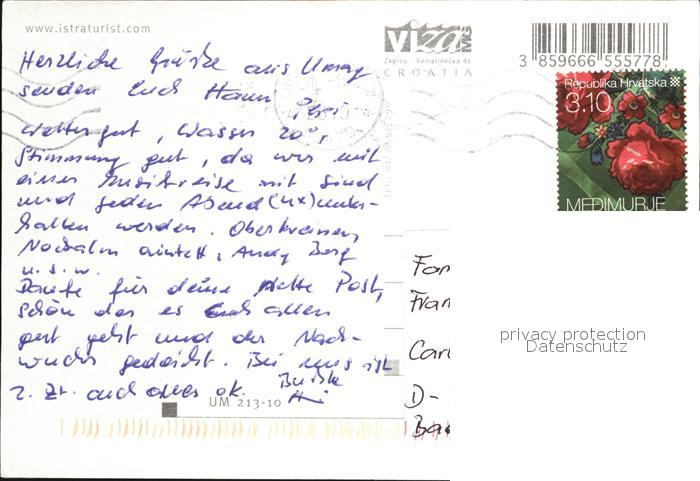 www.istraturist.com
VIZA MG
Zagreb - Remetinečka 81
CROATIA
3 859666 555778
Republika Hrvatska
3.10
MEĐIMURJE
Herzliche Grüße aus Umag
senden Euch Hann
Wetter gut, Wasser 20°,
Stimmung gut, da wir mit
einer Musikreise mit sind
und jeden Abend (4x) unter-
halten werden. Oberkrainer,
Nockalm Quintett, Andy Borg
u.s.w.
Danke für deine nette Post,
schön das es Euch allen
gut geht und der Nach-
wuchs gedeiht. Bei uns ist
z. Zt. auch alles ok.
Fam
Fran
Car
D-
Ba
UM 213-10
privacy protection
Datenschutz